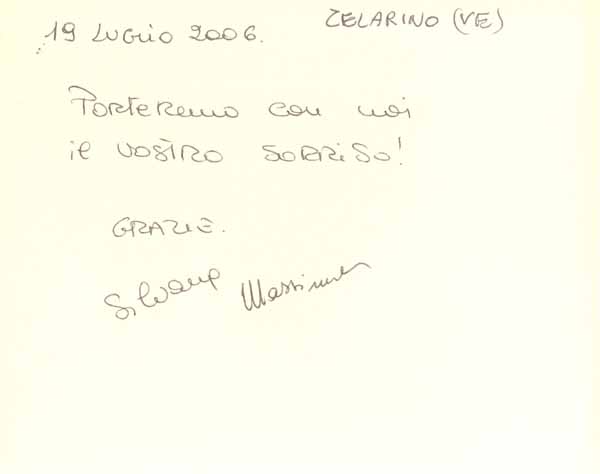 19 LUGLIO 2006. ZELARINO (VE)
PORTEREMO con noi
il VOSTRO SORRISO!
GRAZIE.
Silvana Massimo